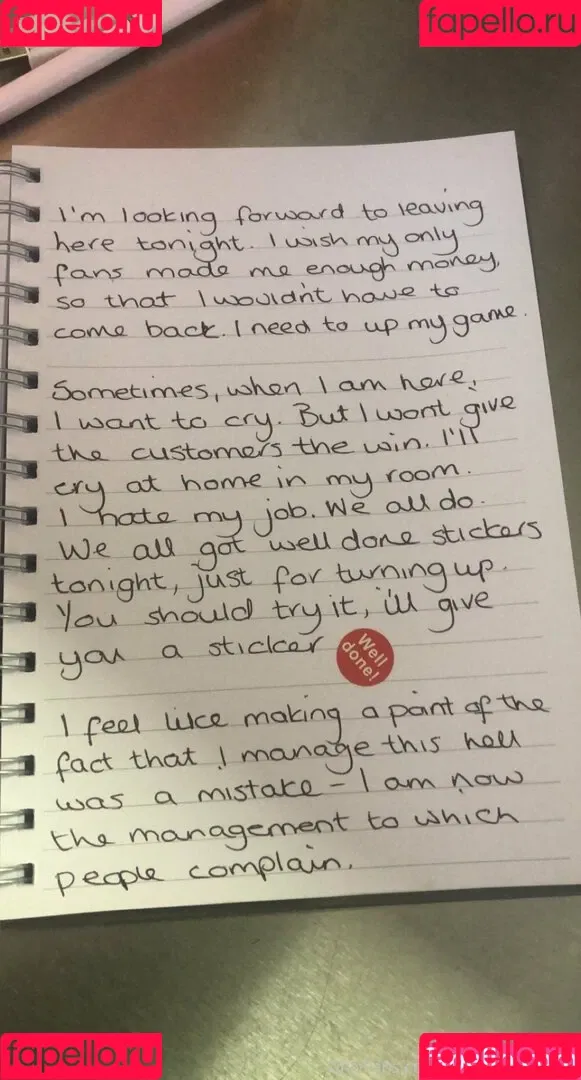 fapello.ru
fapello.ru
I'm looking forward to leaving
here tonight. I wish my only
fans made me enough money,
so that I wouldn't have to
come back. I need to up my game.
Sometimes, when I am here,
I want to cry. But I wont give
the customers the win. I'll
cry at home in my room.
I hate my job. We all do.
We all got well done stickers
tonight, just for turning up.
You should try it, i'll give
you a sticker
Well
done!
I feel like making a point of the
fact that I manage this hell
was a mistake - I am now
the management to which
people complain.
fapello.ru
fapello.ru